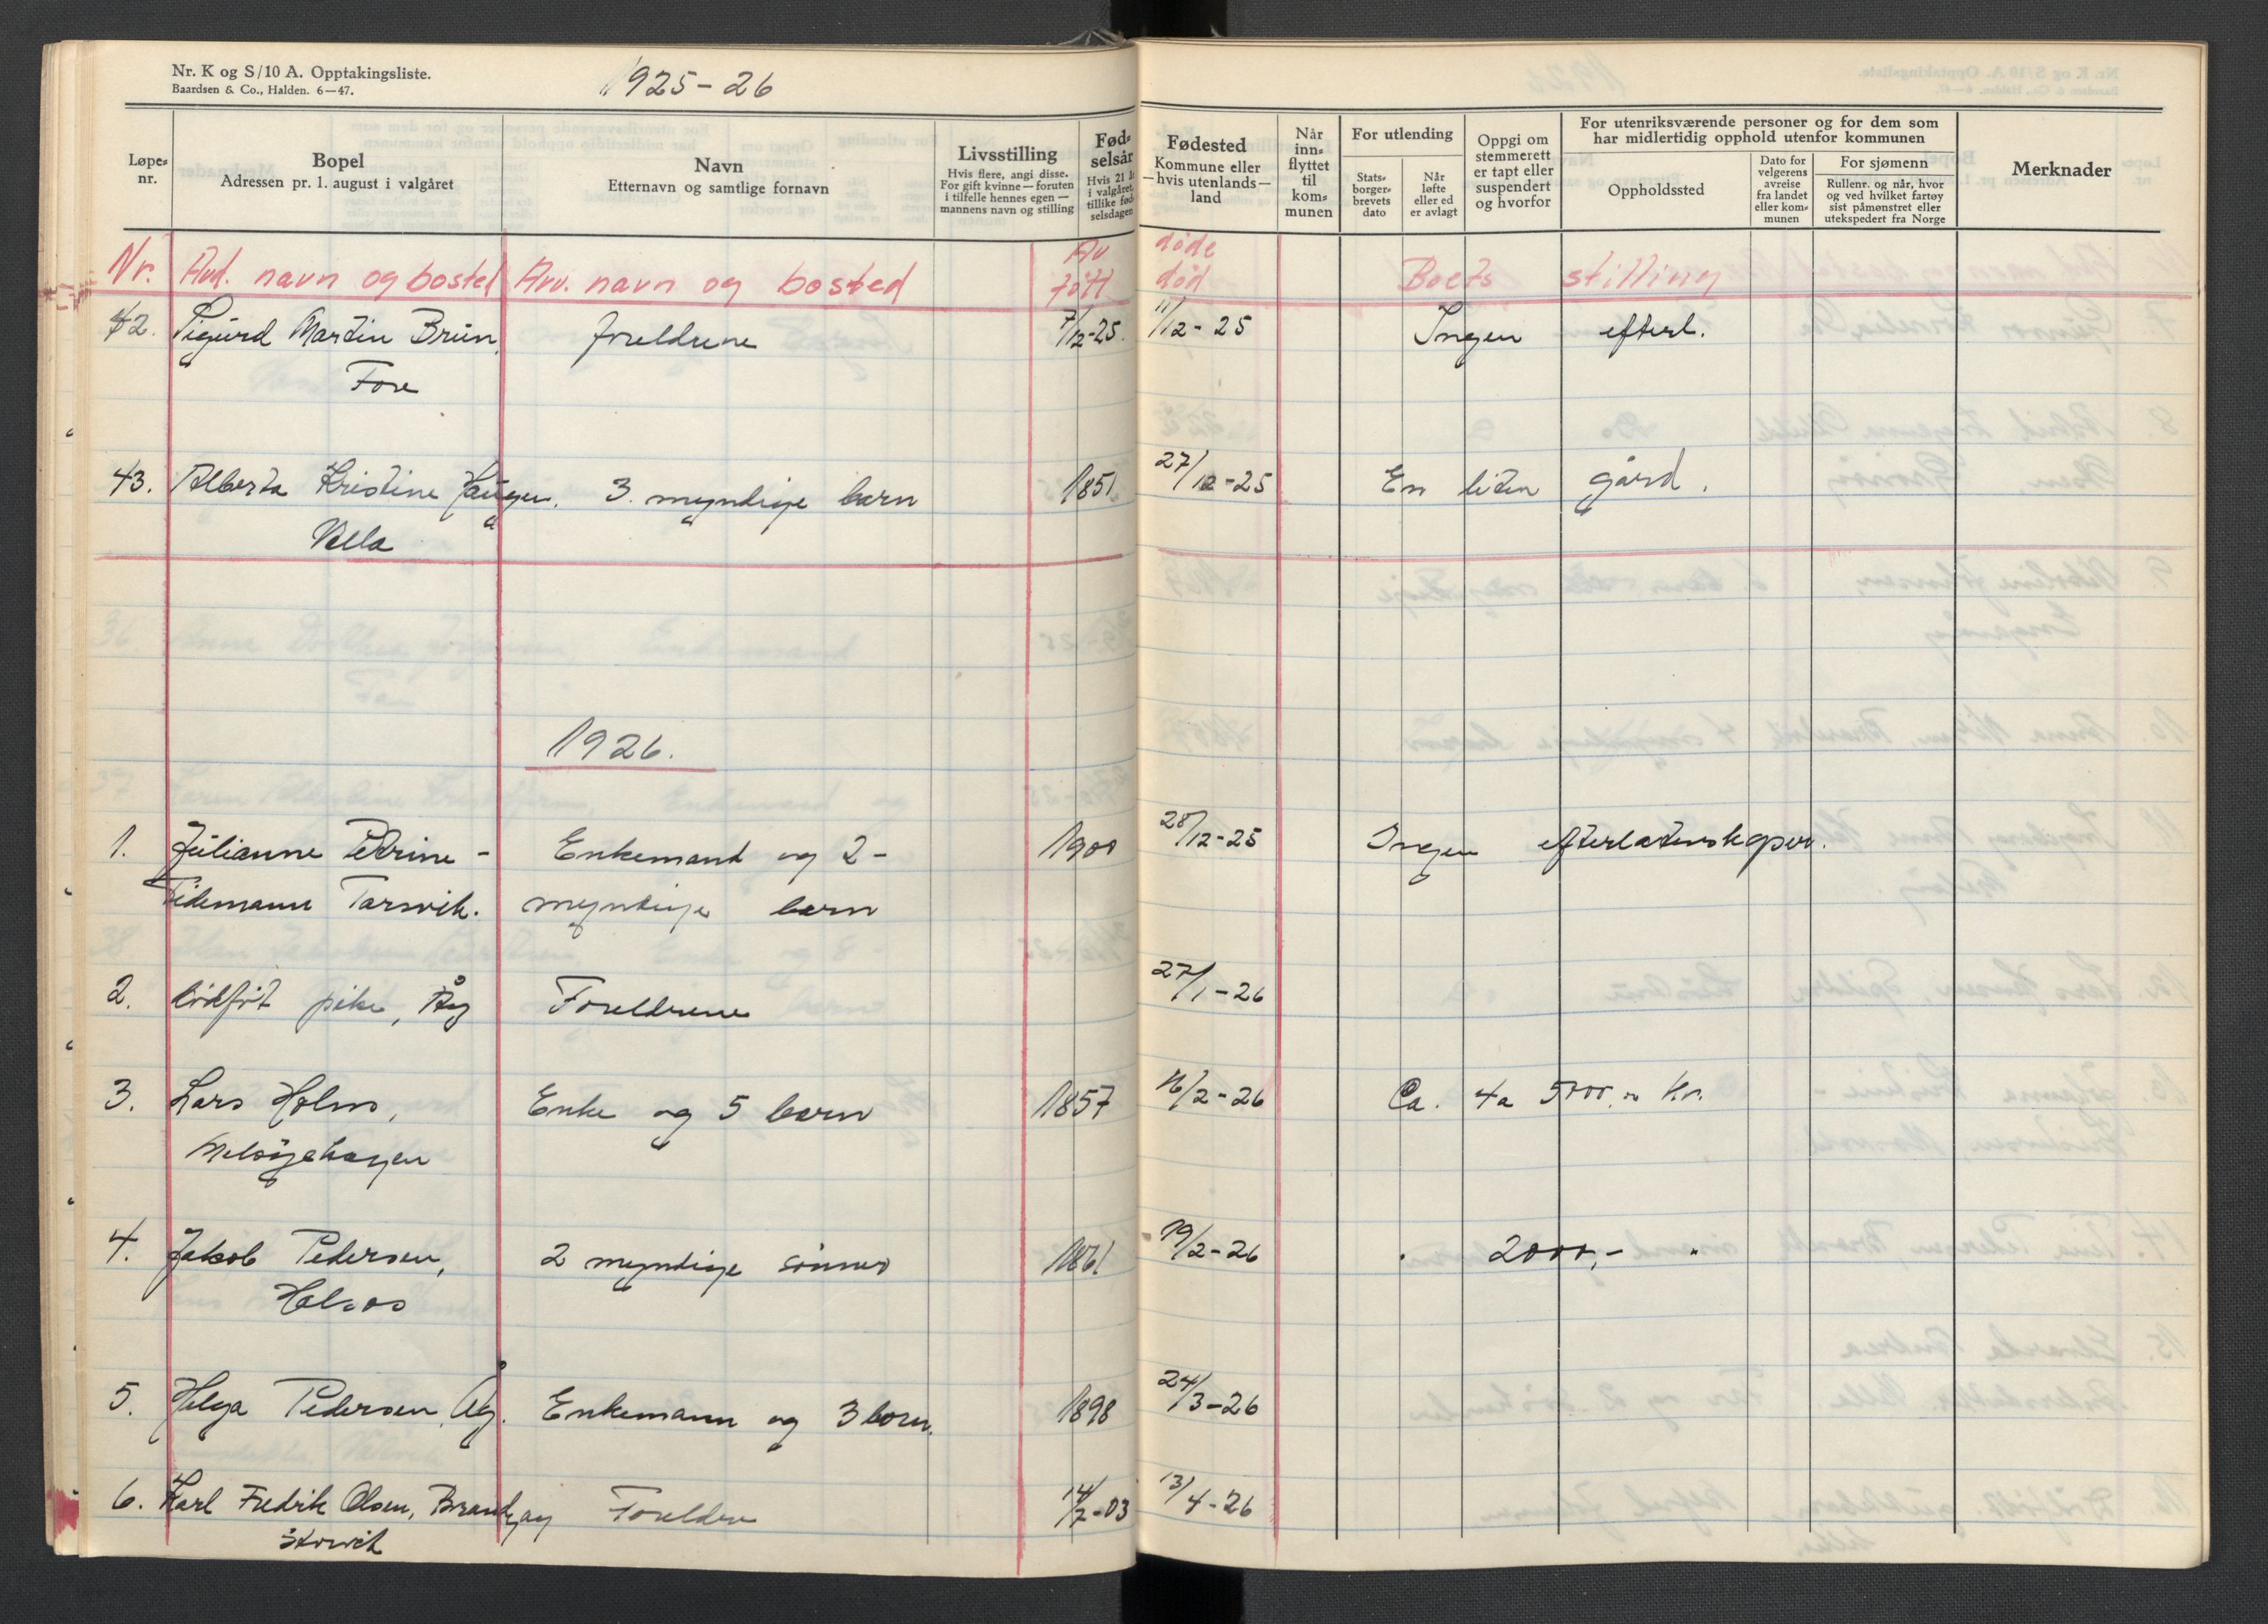 Nr. K og S/10 A. Opptakingsliste.
Baardsen & Co., Halden. 6—47.
1925-26
Løpe-
nr.
Bopel
Adressen pr. 1. august i valgåret
Navn
Etternavn og samtlige fornavn
Livsstilling
Hvis flere, angi disse.
For gift kvinne — foruten
i tilfelle hennes egen —
mannens navn og stilling
Fød-
selsår
Hvis 21 å
i valgåret,
tillike fød-
selsdagen
Fødested
Kommune eller
—hvis utenlands—
land
Når
inn-
flyttet
til
kom-
munen
For utlending
Stats-
borger-
brevets
dato
Når
løfte
eller ed
er avlagt
Oppgi om
stemmerett
er tapt eller
suspendert
og hvorfor
For utenriksværende personer og for dem som
har midlertidig opphold utenfor kommunen
Oppholdssted
Dato for
velgerens
avreise
fra landet
eller kom-
munen
For sjømenn
Rullenr. og når, hvor
og ved hvilket fartøy
sist påmønstret eller
utekspedert fra Norge
Merknader
Av døde
Nr. Avd. navn og bosted Arv. navn og bosted født død Boets stilling
42. Sigurd Martin Brun, foreldrene 7/12-25. 11/12-25 Ingen efterl.
Fore
43. Alberta Kristine Haugen, 3 myndige barn 1851 27/12-25 En liten gård.
Valla
1926.
1. Julianne Petrine - Enkemand og 2- 1900 28/12-25 Ingen efterlatenskaper.
Tidemann Torsvik. myndige barn
2. Dødføt pike, Åg Foreldrene 27/1-26
3. Lars Holm, Enke og 5 barn 1857 16/2-26 Ca. 4 a 5000,00 Kr.
Meløgehaugen
4. Jakob Pedersen, 2 myndige sønner 1861 19/2-26 " 2000,- "
Halsos
5. Helga Pedersen, Åg. Enkemann og 3 barn. 1898 24/3-26
6. Karl Fredrik Olsen, Foreldre 14/2-03 13/4-26
Storvik